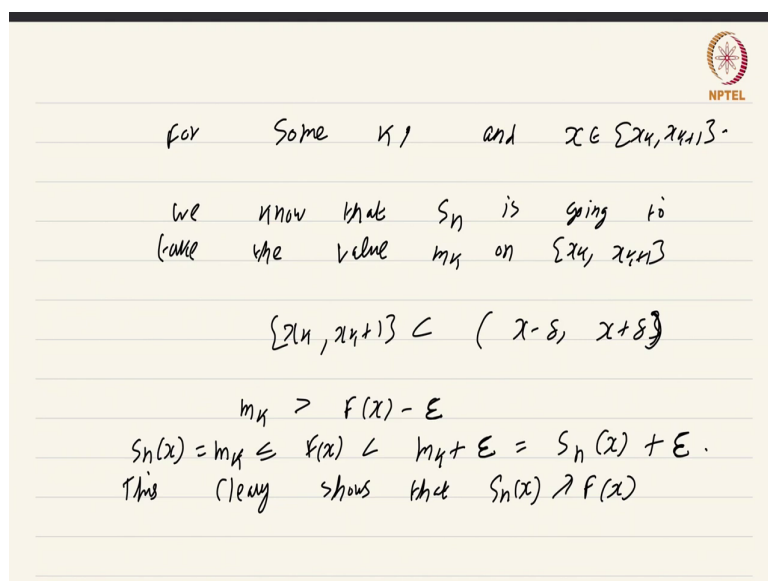 NPTEL
For Some K, and x ∈ [x_K, x_{K+1}].
We know that S_n is going to
take the value m_K on [x_K, x_{K+1}]
[x_K, x_{K+1}] ⊂ (x-δ, x+δ)
m_K > F(x) - ε
S_n(x) = m_K ≤ F(x) < m_K + ε = S_n(x) + ε.
This cleary shows that S_n(x) ↗ F(x)